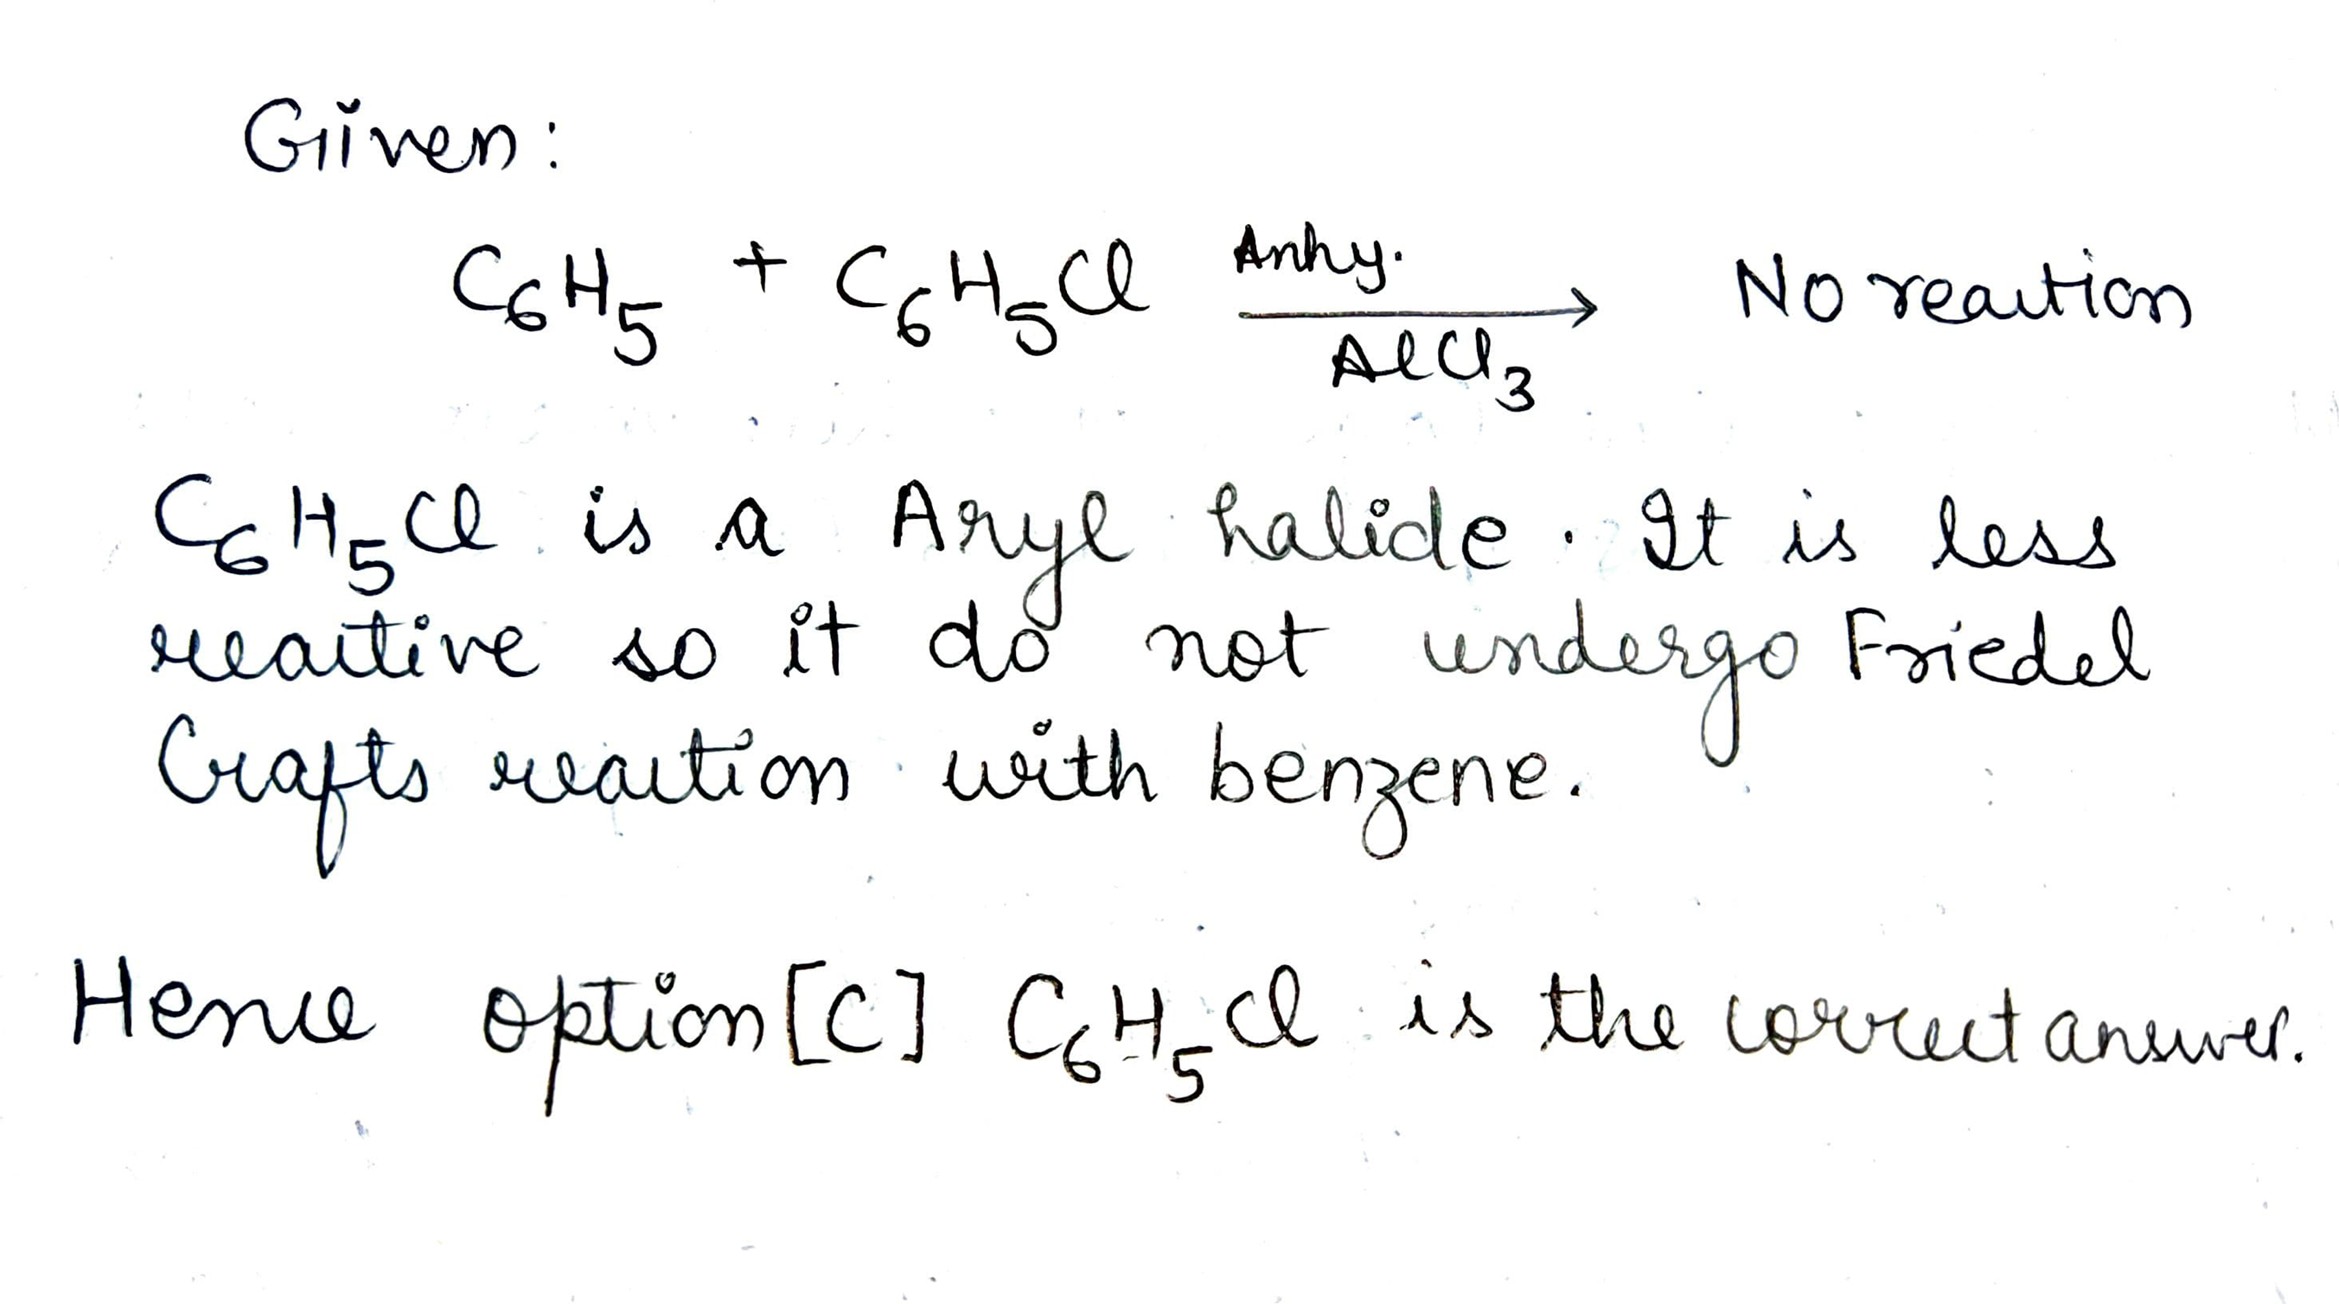 Given:
C₆H₅ + C₆H₅Cl Anhy. AlCl₃ → No reaction
C₆H₅Cl is a Aryl halide. It is less
reactive so it do not undergo Friedel
Crafts reaction with benzene.
Hence option [C] C₆H₅Cl is the correct answer.